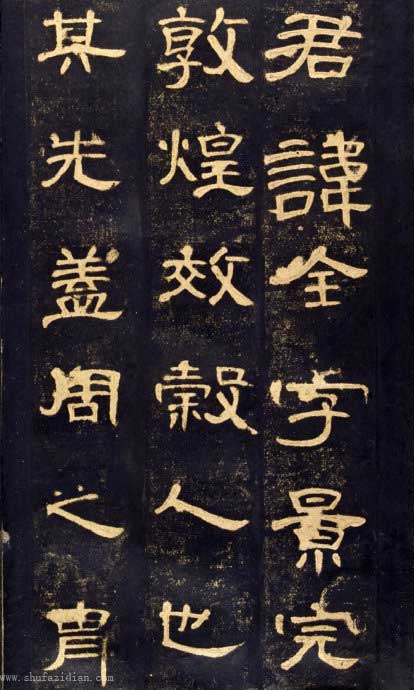 君諱全字景完
敦煌效穀人也
其先蓋周之胄
www.shufazidian.com